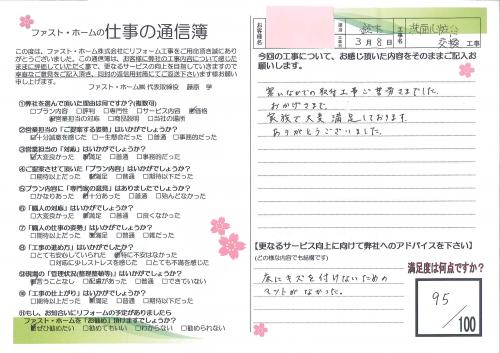 ファスト・ホームの仕事の通信簿
この度は、ファスト・ホーム株式会社にリフォーム工事をご用命頂き誠にあり
がとうございました。この通信簿は、お客様に弊社の工事内容について感じた
ままに評価していただく事で、更なるサービスの向上を目指していきますので
率直なご意見をご記入頂き、同封の返信用封筒にてご返送下さいます様お願い
申し上げます。
ファスト・ホーム㈱ 代表取締役 藤原 学
①弊社を選んで頂いた理由は何ですか？(複数可)
□プラン内容 □評判 □専門性 □サービス内容 ☑価格
☑営業担当の対応 □商品説明 □当社の場所
②営業担当の「ご提案する姿勢」はいかがでしたか？
☑十分誠意を感じた □一生懸命だった □普通 □事務的だった
③営業担当の「対応」はいかがでしたか？
☑大変良かった □満足 □普通 □事務的だった
④ご提案させて頂いた「プラン内容」はいかがでしたか？
□期待以上だった ☑満足 □普通 □期待以下だった
⑤プラン内容に「専門家の意見」はありましたでしょうか？
□かなりあった ☑十分あった □普通 □殆んどなかった
⑥「職人の対応」はいかがでしたでしょうか？
□大変良かった ☑満足 □普通 □良くなかった
⑦「職人の仕事の姿勢」はいかがでしたでしょうか？
□期待以上だった ☑満足 □普通 □期待以下だった
⑧「工事の進め方」はいかがでしたでしょうか？
□とても安心していられた ☑特に不安はなかった
□対応に少しストレスを感じた □とても不満を感じた
⑨現場の「管理状況(整理整頓等)」はいかがでしたでしょうか？
☑言うことなし □配慮があった □普通 □できていない
⑩「工事の仕上がり」はいかがでしたでしょうか？
□期待以上だった ☑満足 □普通 □期待以下だった
⑪もし、お知合いにリフォームの予定がありましたら
ファスト・ホームを「お勧め」頂けますでしょうか？
☑ぜひ勧めたい □勧めてもいい □わからない □勧められない
お客様名
3月8日
工事名
洗面化粧台
交換 工事
今回の工事について、お感じ頂いた内容をそのままご記入お
願いします。
寒いなかでの取付工事ご苦労さまでした。
おかげさまで、
家族で大変満足しております。
ありがとうございました。
【更なるサービス向上に向けて弊社へのアドバイスを下さい】
(どの様な内容でも結構です)
床にキズを付けないための
マットがなかった。
満足度は何点ですか？
95
/100